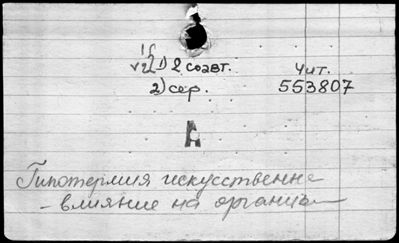 1) 2 соавт. Чит.
2) сер. 553807
А
Гипотермия искусственн
– влияние на организм